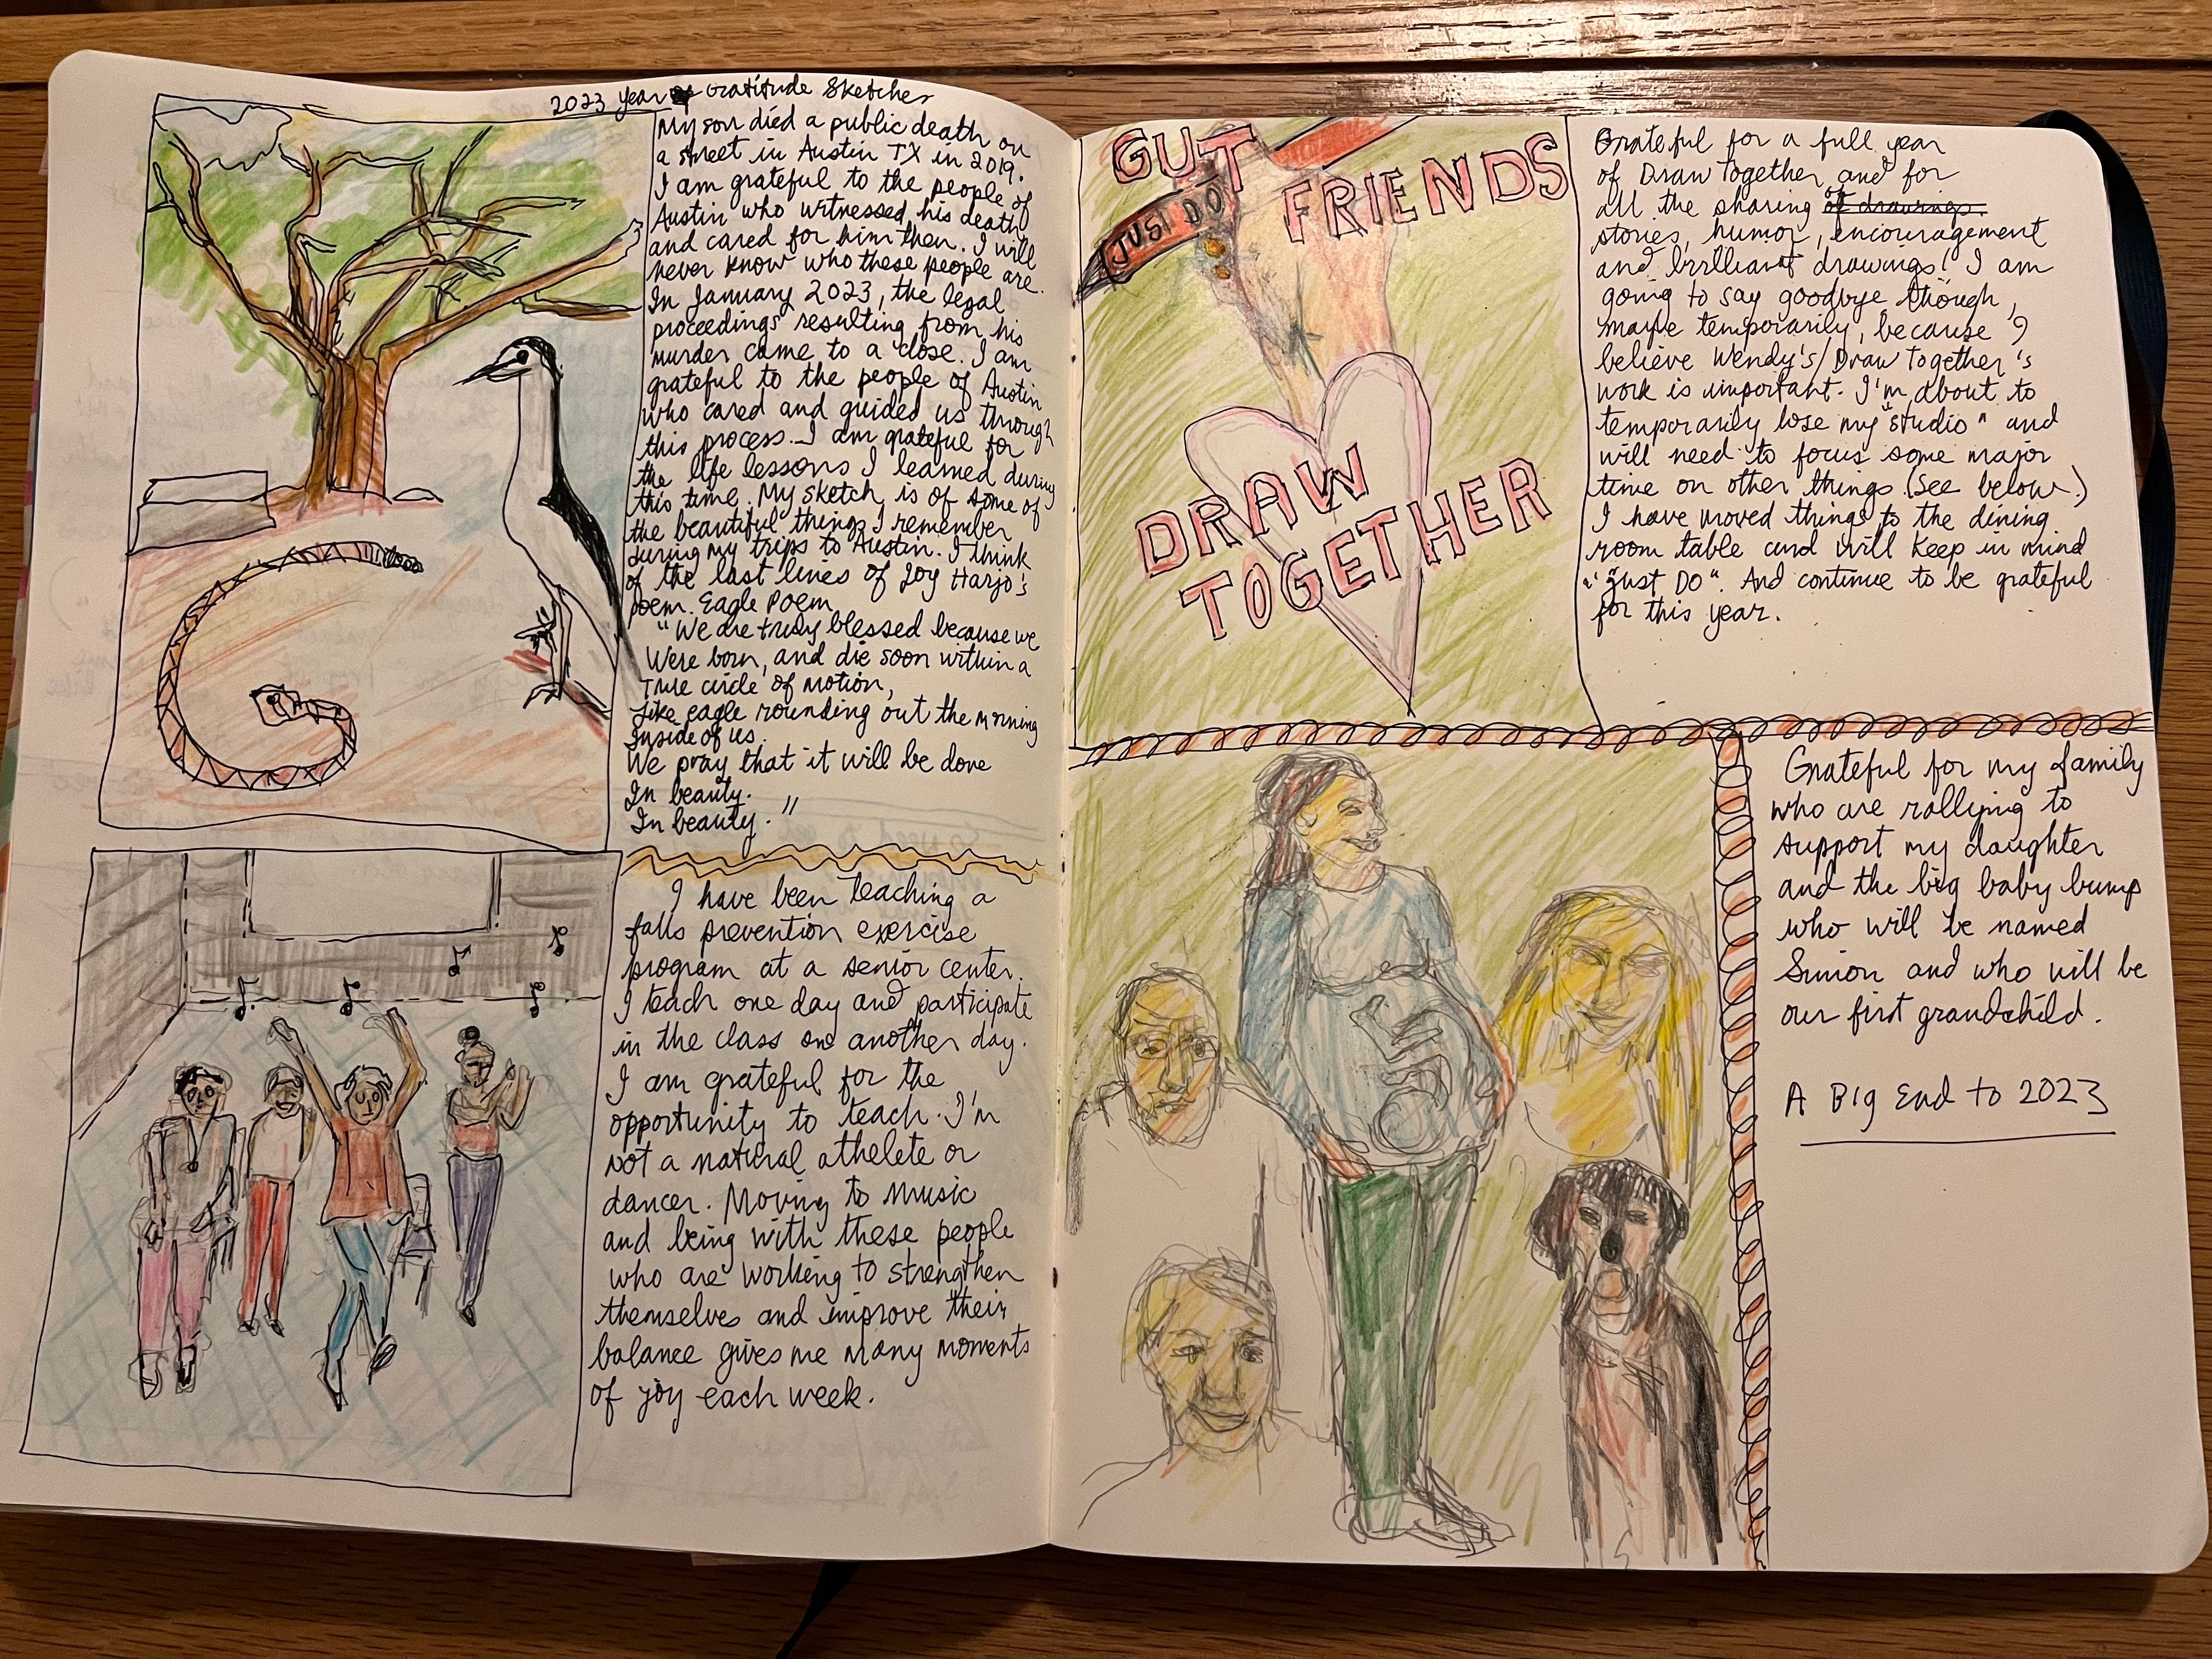 2023 year of Gratitude Sketches
My son died a public death on
a street in Austin TX in 2019.
I am grateful to the people of
Austin who witnessed his death
and cared for him then. I will
never know who these people are.
In January 2023, the legal
proceedings resulting from his
murder came to a close. I am
grateful to the people of Austin
who cared and guided us through
this process. I am grateful for
the life lessons I learned during
this time. My sketch is of some of
the beautiful things I remember
during my trips to Austin. I think
of the last lines of Joy Harjo's
poem. Eagle Poem
"We are truly blessed because we
Were born, and die soon within a
True circle of motion,
Like eagle rounding out the morning
Inside of us.
We pray that it will be done
In beauty.
In beauty."
I have been teaching a
falls prevention exercise
program at a senior center.
I teach one day and participate
in the class on another day.
I am grateful for the
opportunity to teach. I'm
not a natural athelete or
dancer. Moving to music
and being with these people
who are working to strengthen
themselves and improve their
balance gives me many moments
of joy each week.
GUT
FRIENDS
JUST DO
DRAW
TOGETHER
Grateful for a full year
of DrawTogether and for
all the sharing of drawings. of
stories, humor, encouragement
and brilliant drawings! I am
going to say goodbye though,
maybe temporarily, because I
believe Wendy's/DrawTogether's
work is important. I'm about to
temporarily lose my "studio" and
will need to focus some major
time on other things (see below.)
I have moved things to the dining
room table and will keep in mind
"Just DO". And continue to be grateful
for this year.
Grateful for my family
who are rallying to
support my daughter
and the big baby bump
who will be named
Simon and who will be
our first grandchild.
A Big End to 2023